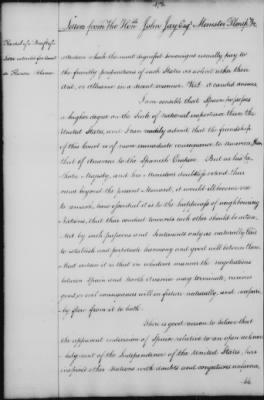 Letters from The Hon.ble John Jay Esq. Minister Plenip. &c
attention which the most dignified sovereigns usually pay to
the friendly propositions of such States as solicit either their
aid, or alliance in a decent manner. Viz. a candid answer.
I am sensible that Spain possesses
a higher degree on the Scale of national importance than the
United States, and I can readily admit that the friendship
of this Court is of more immediate consequence to America, than
that of America to the Spanish Empire. But as his Ca-
tholic Majesty, and his Ministers doubtless extend their
views beyond the present Moment, it would ill become me
to remark, how essential it is to the happiness of neighbouring
Nations, that their conduct towards each other should be actua-
ted by such passions and Sentiments only as naturally tend
to establish and perpetuate harmony and good will between them.
Most certain it is that in whatever manner the negotiations
between Spain and North America may terminate, various
good, or evil consequences will in future naturally, and
flow from it to both.
There is good reason to believe that
the apparent indecision of Spain, relative to an open acknow-
ledgment of the Independence of the United States, has
inspired other Nations with doubts and conjectures unfavora-